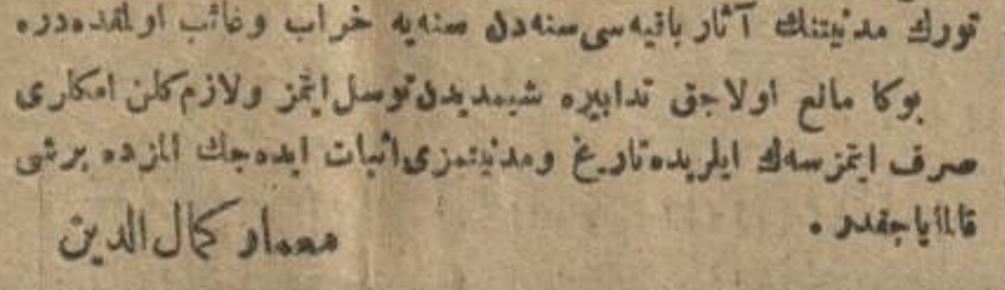 تورك مدنيتنك آثار باقيه سی سنه دن سنه يه خراب وغائب اولمقده در.
بوكا مانع اولاجق تدابيره شيمديدن توسل ايتمز ولازم كلن امكاری
صرف ايتمزسه ك ايلريده تاريخ ومدنيتمزی اثبات ايده جك المزده برشی
قالماياجقدر .
معمار كمال الدين